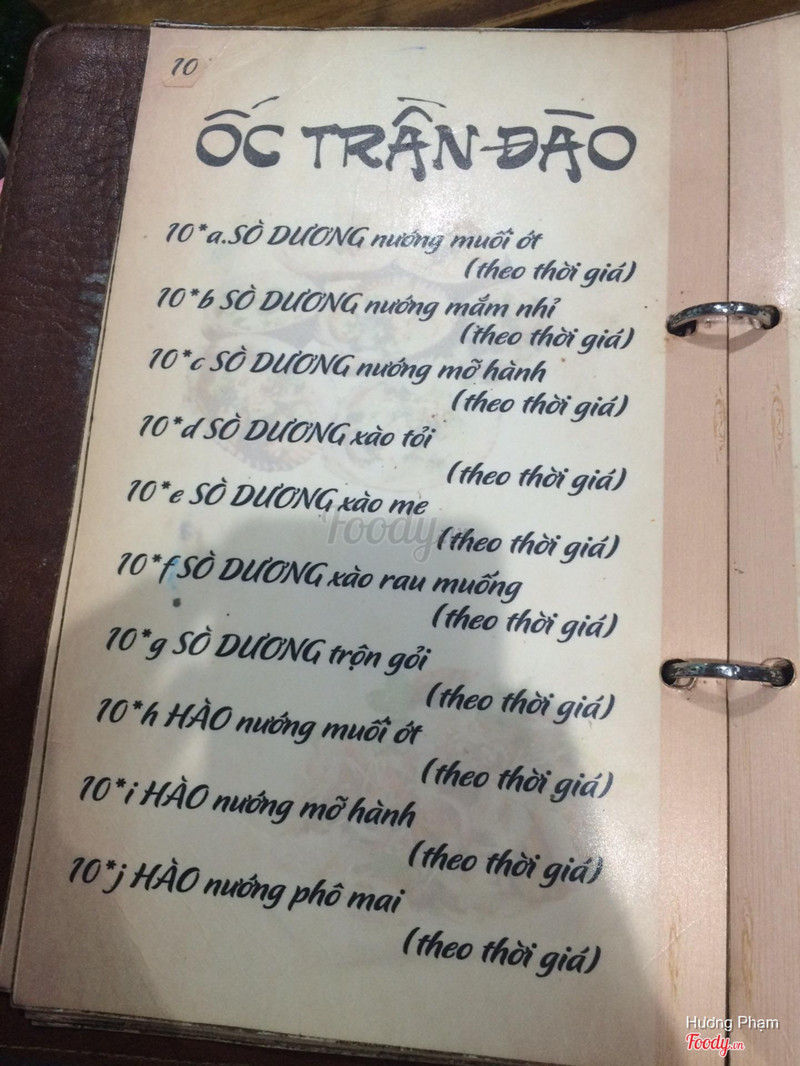 10
ỐC TRẦN ĐÀO
10*a.SÒ DƯƠNG nướng muối ớt
(theo thời giá)
10*b SÒ DƯƠNG nướng mắm nhỉ
(theo thời giá)
10*c SÒ DƯƠNG nướng mỡ hành
(theo thời giá)
10*d SÒ DƯƠNG xào tỏi
(theo thời giá)
10*e SÒ DƯƠNG xào me
(theo thời giá)
10*f SÒ DƯƠNG xào rau muống
(theo thời giá)
10*g SÒ DƯƠNG trộn gỏi
(theo thời giá)
10*h HÀO nướng muối ớt
(theo thời giá)
10*i HÀO nướng mỡ hành
(theo thời giá)
10*j HÀO nướng phô mai
(theo thời giá)
Foody.vn
Hương Phạm
Foody.vn